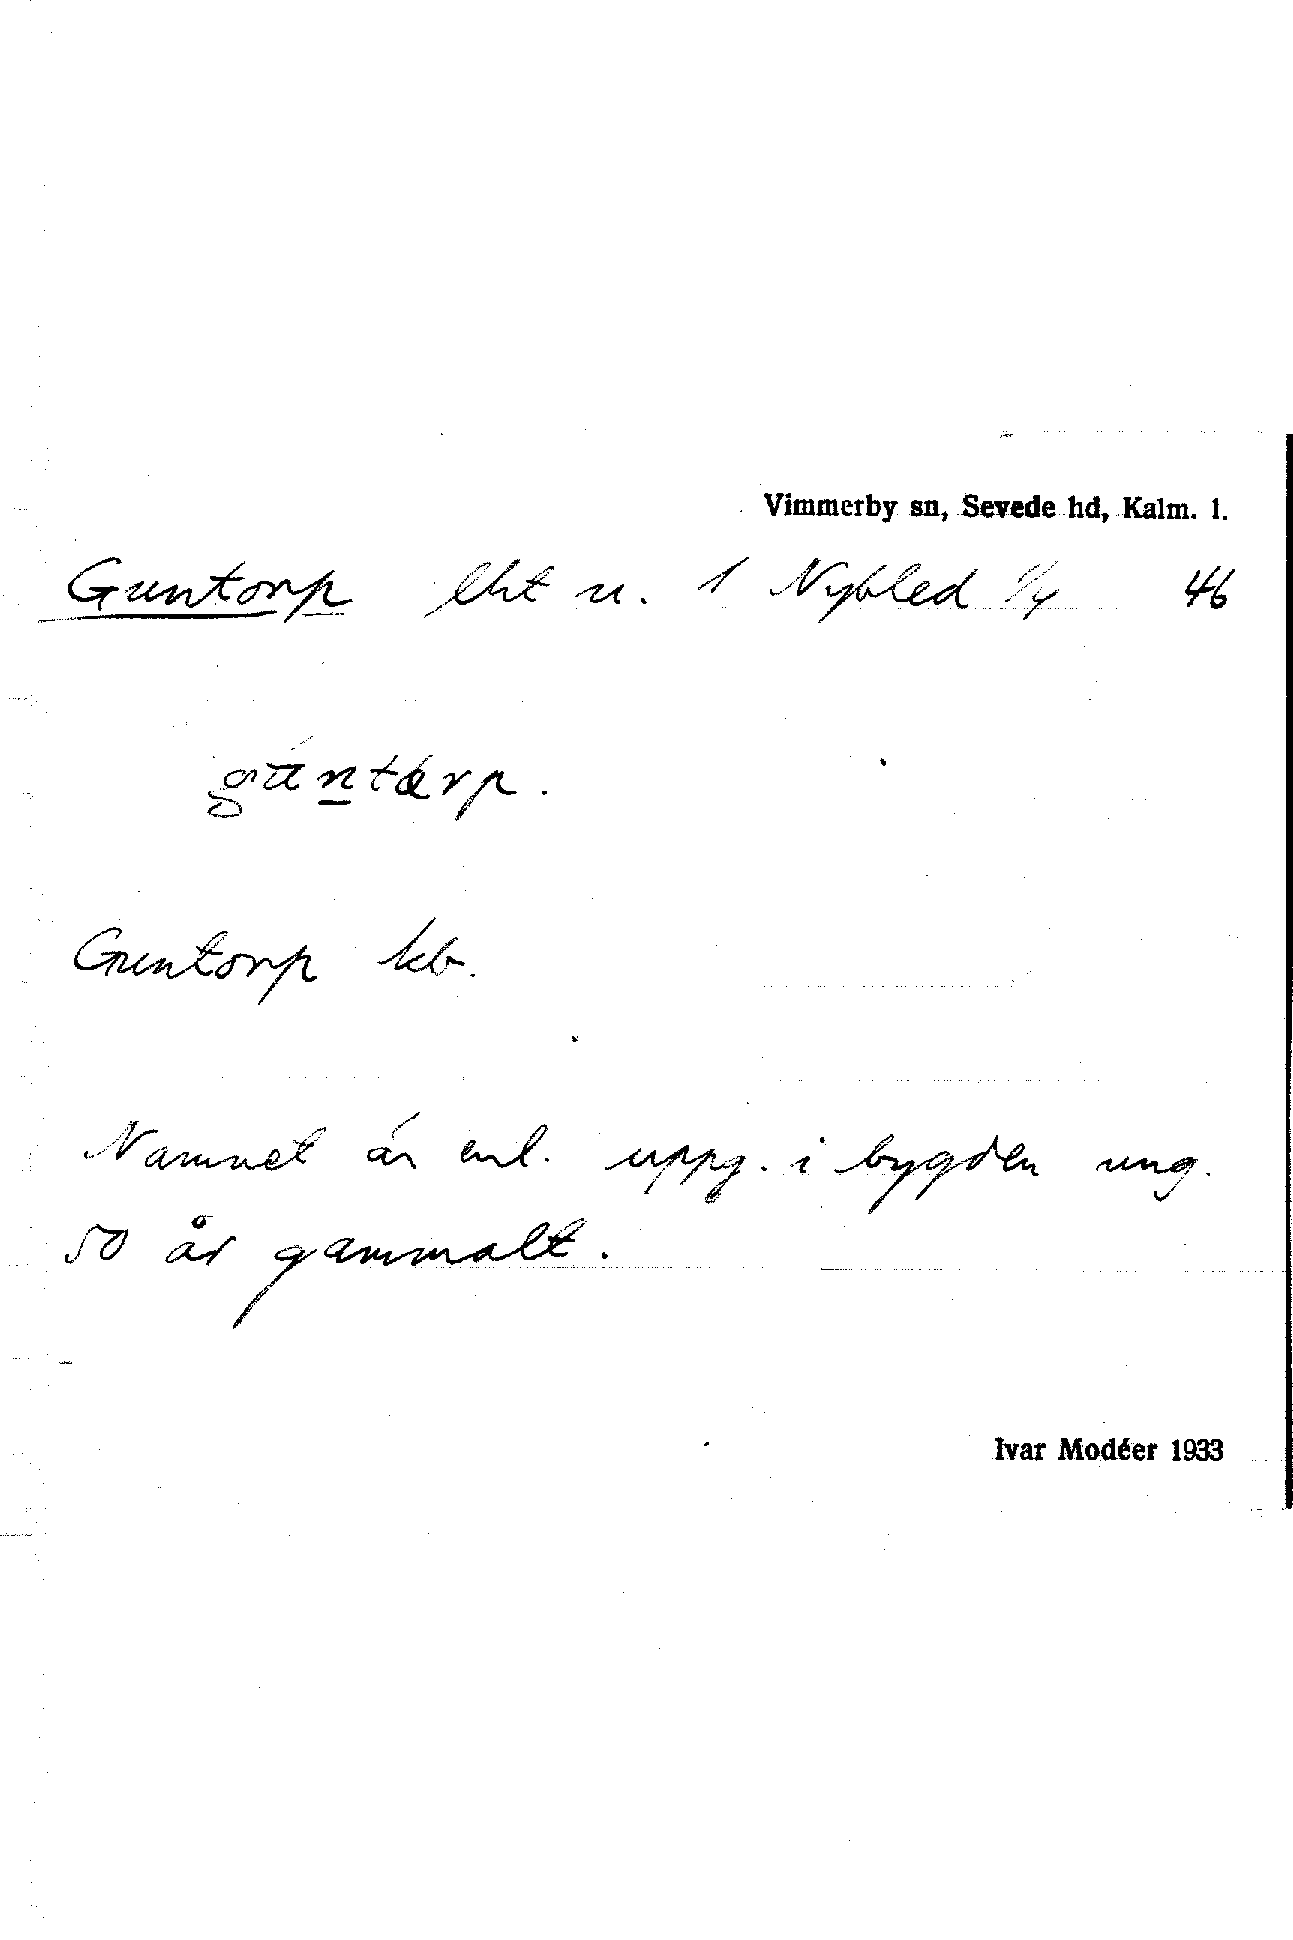 Vimmerby sn, Sevede hd, Kalm. l.
Guntorp lht u. 1 Nybled 1/4 46
gu̇ntærp.
Guntorp kb.
Namnet är enl. uppg. i bygden ung.
50 år gammalt.
Ivar Modéer 1933